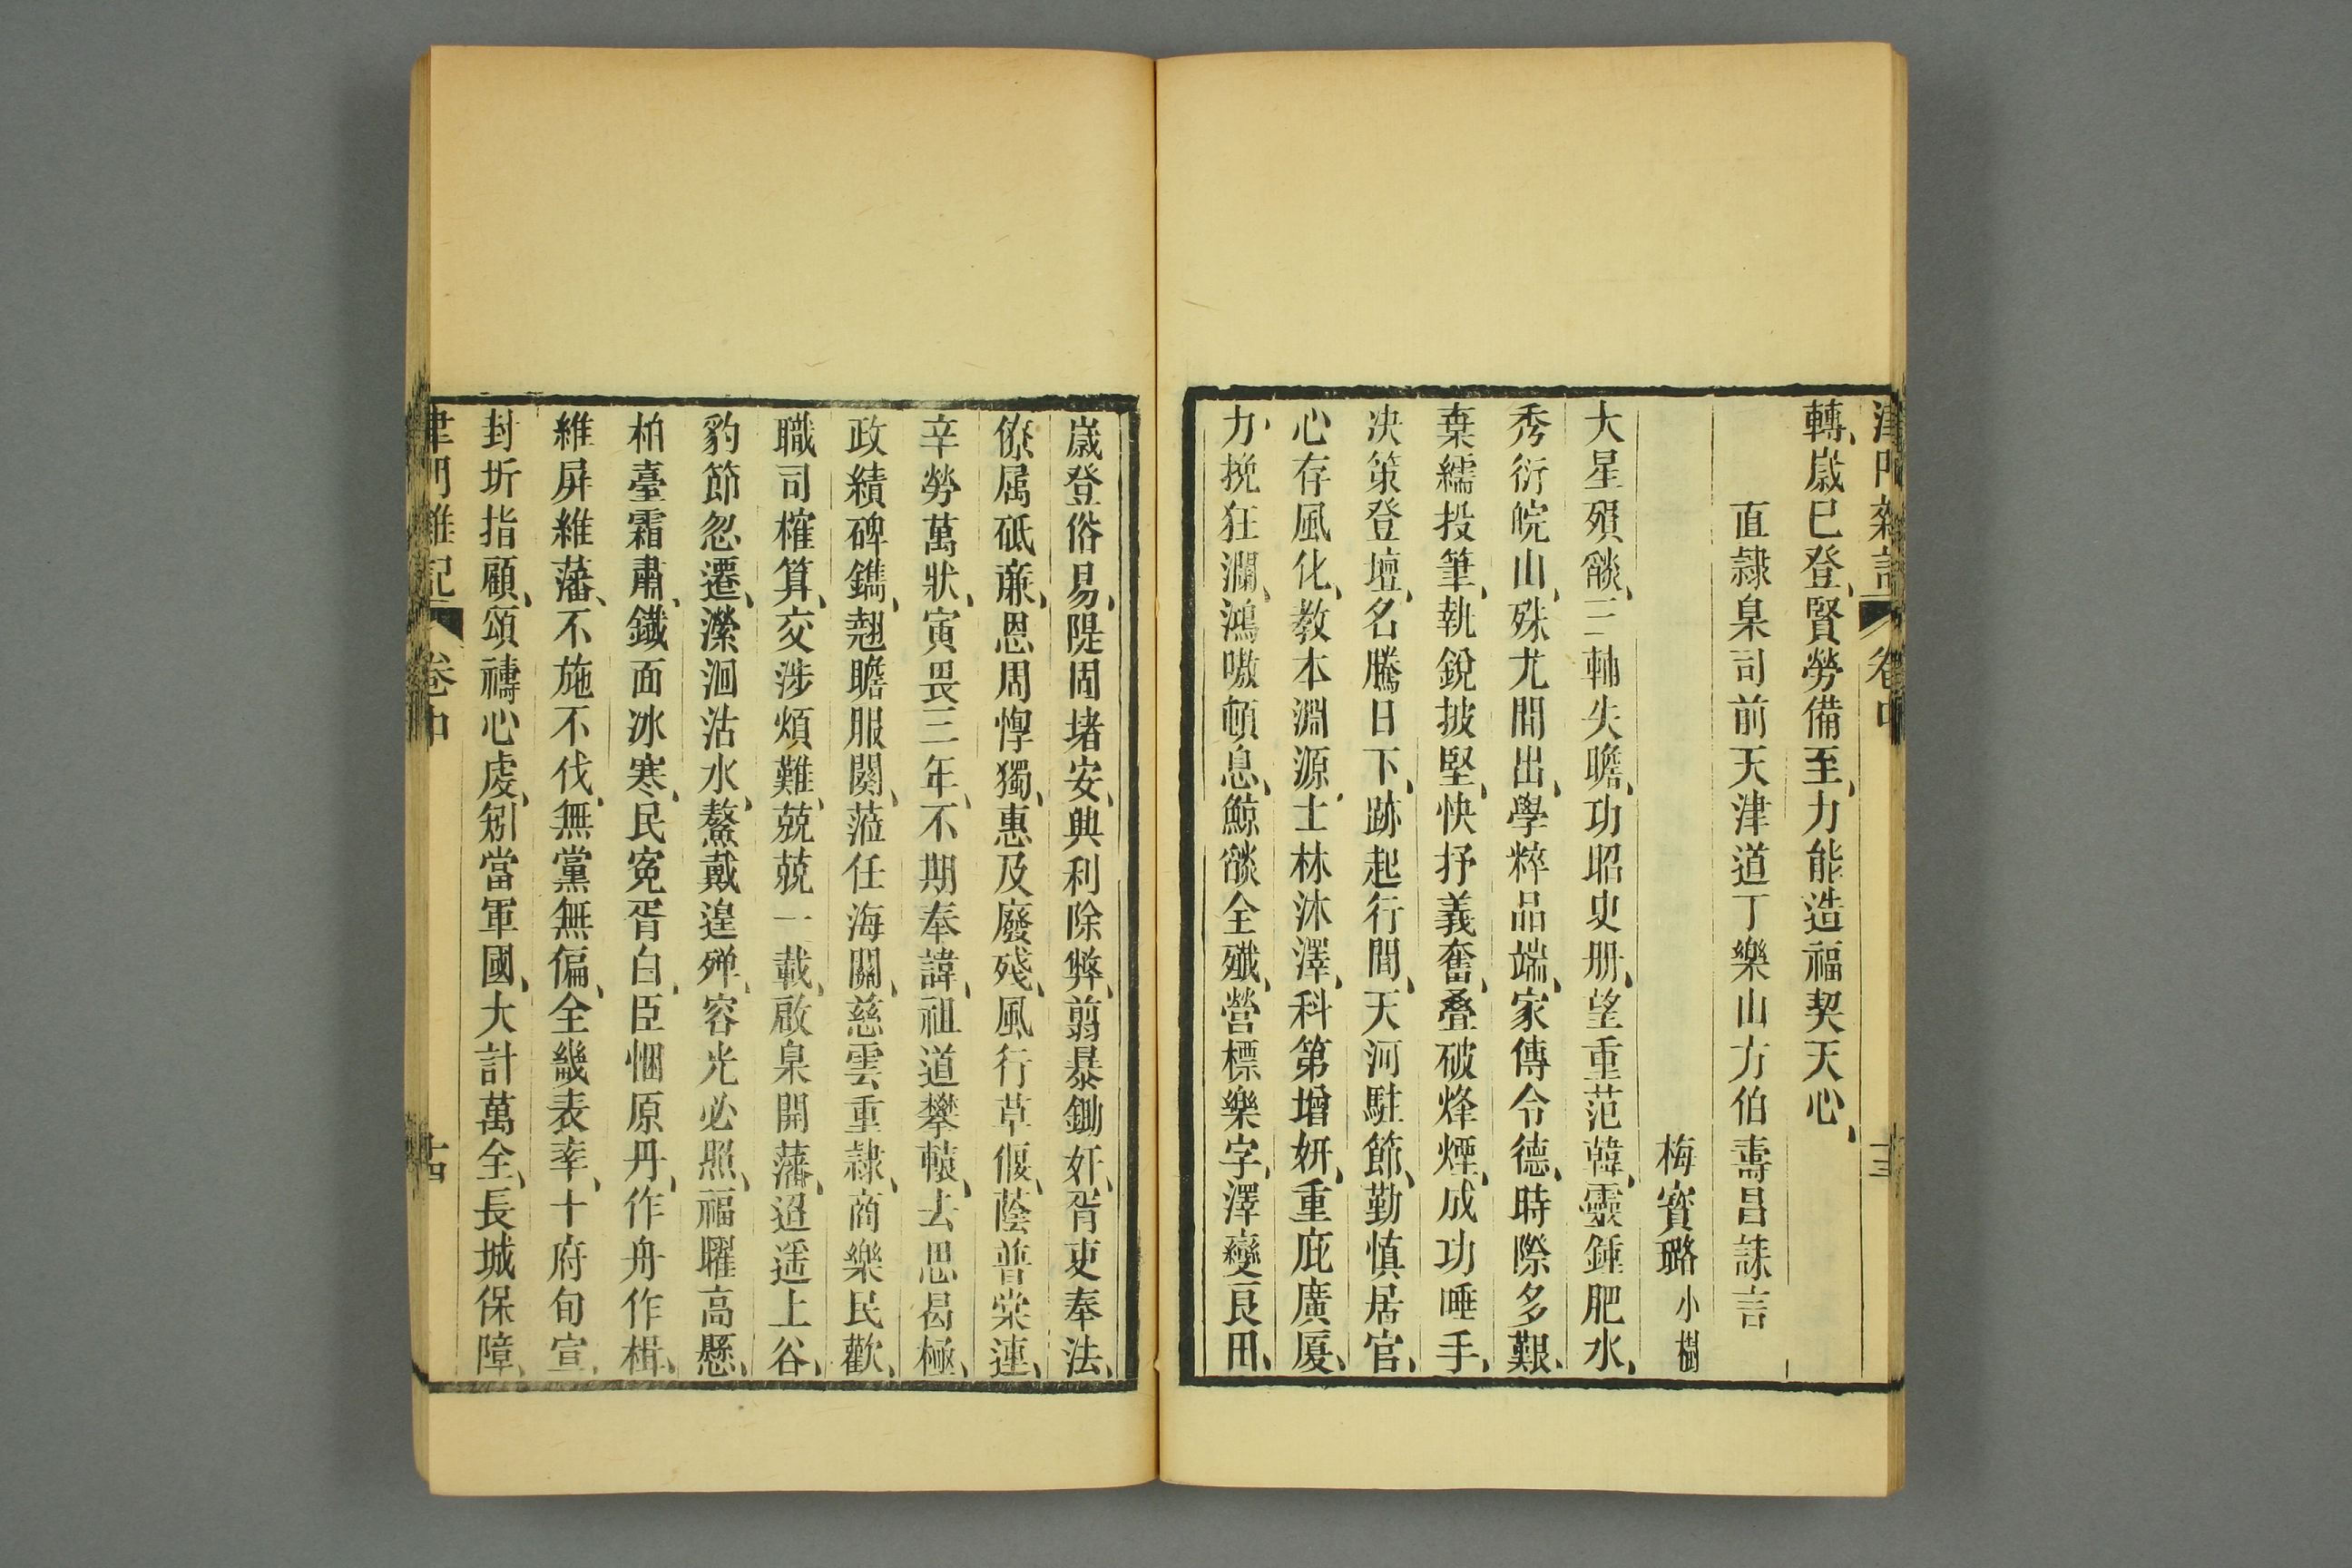 津門雜記 卷中 十三
轉、歲已登、賢勞備至、力能造福契天心、
直隷臬司前天津道丁樂山方伯壽昌誄言
梅寳璐小樹
大星殞燄、三輔失瞻、功昭史册、望重范韓、靈鍾肥水、
秀衍皖山、殊尤間出、學粹品端、家傳令德、時際多艱、
棄繻投筆、執銳披堅、快抒義奮、叠破烽煙、成功唾手、
决策登壇、名騰日下、跡起行間、天河駐節、勤慎居官、
心存風化、教本淵源、士林沐澤、科第增妍、重庇廣厦、
力挽狂瀾、鴻嗷頓息、鯨燄全殲、營標樂字、澤變良田、
歲登俗易、隄固堵安、興利除弊、翦暴鋤奸、胥吏奉法、
僚属砥亷、恩周惸獨、惠及廢殘、風行草偃、蔭普棠連、
辛勞萬狀、寅畏三年、不期奉諱、祖道攀轅、去思曷極、
政績碑鐫、翹瞻服闋、蒞任海關、慈雲重隷、商樂民歡、
職司榷算、交涉煩難、兢兢一載、啟臬開藩、迢遥上谷、
豹節忽遷、瀠洄沽水、鰲戴遑殫、容光必照、福曜高懸、
柏臺霜肅、鐵面冰寒、民寃胥白、臣悃原丹、作舟作楫、
維屏維藩、不施不伐、無黨無偏、全畿表率、十府旬宣、
封圻指顧、頌禱心虔、矧當軍國、大計萬全、長城保障、
津門雜記 卷中 十四